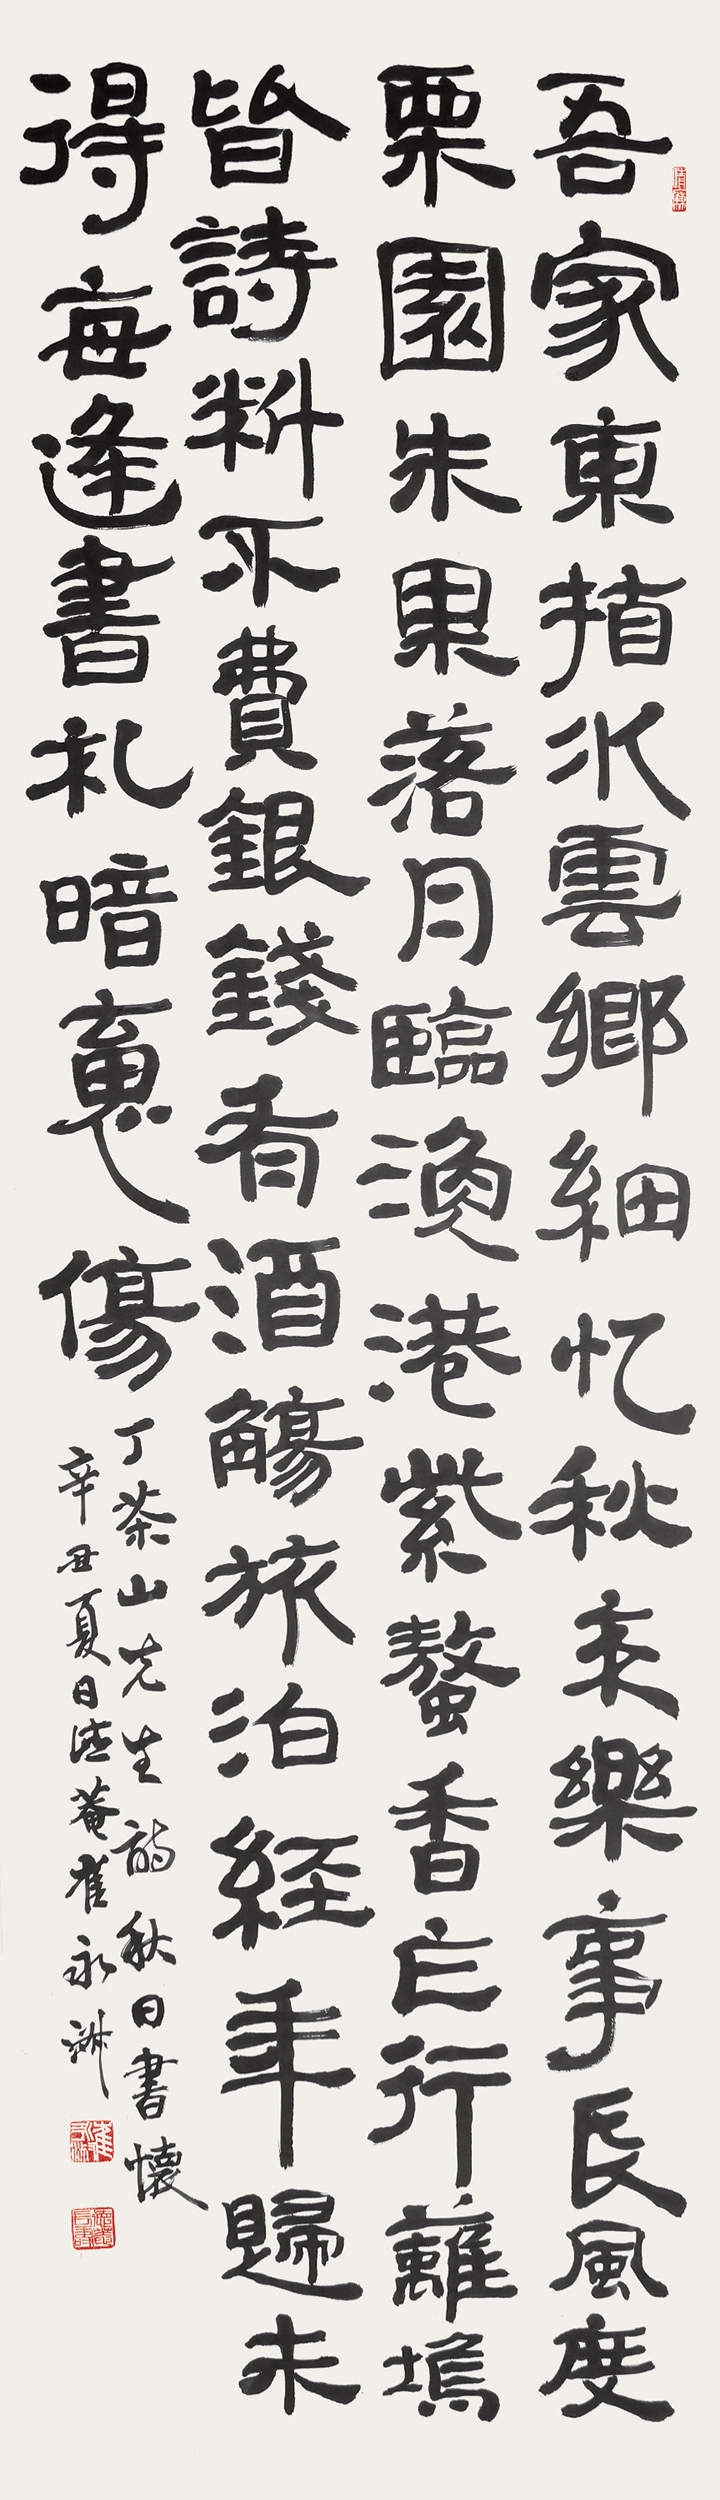 吾家東指水雲鄉細忆秋来樂事長風度
栗園朱果落月臨漁港紫螯香乍行蘺塢
皆詩料不費銀錢有酒觴旅泊経年歸未
得每逢書札暗魂傷
丁茶山先生的秋日書懷
辛丑夏日菴崔永